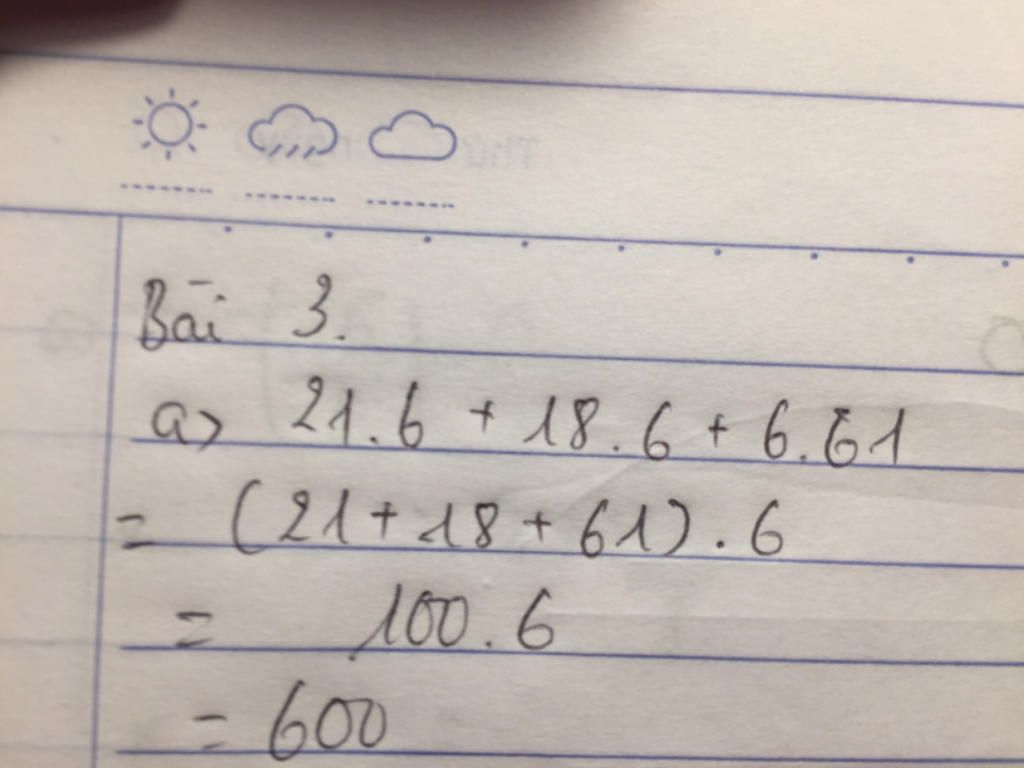 Bài 3.
a) 21.6 + 18.6 + 6.61
= (21 + 18 + 61) . 6
= 100.6
= 600